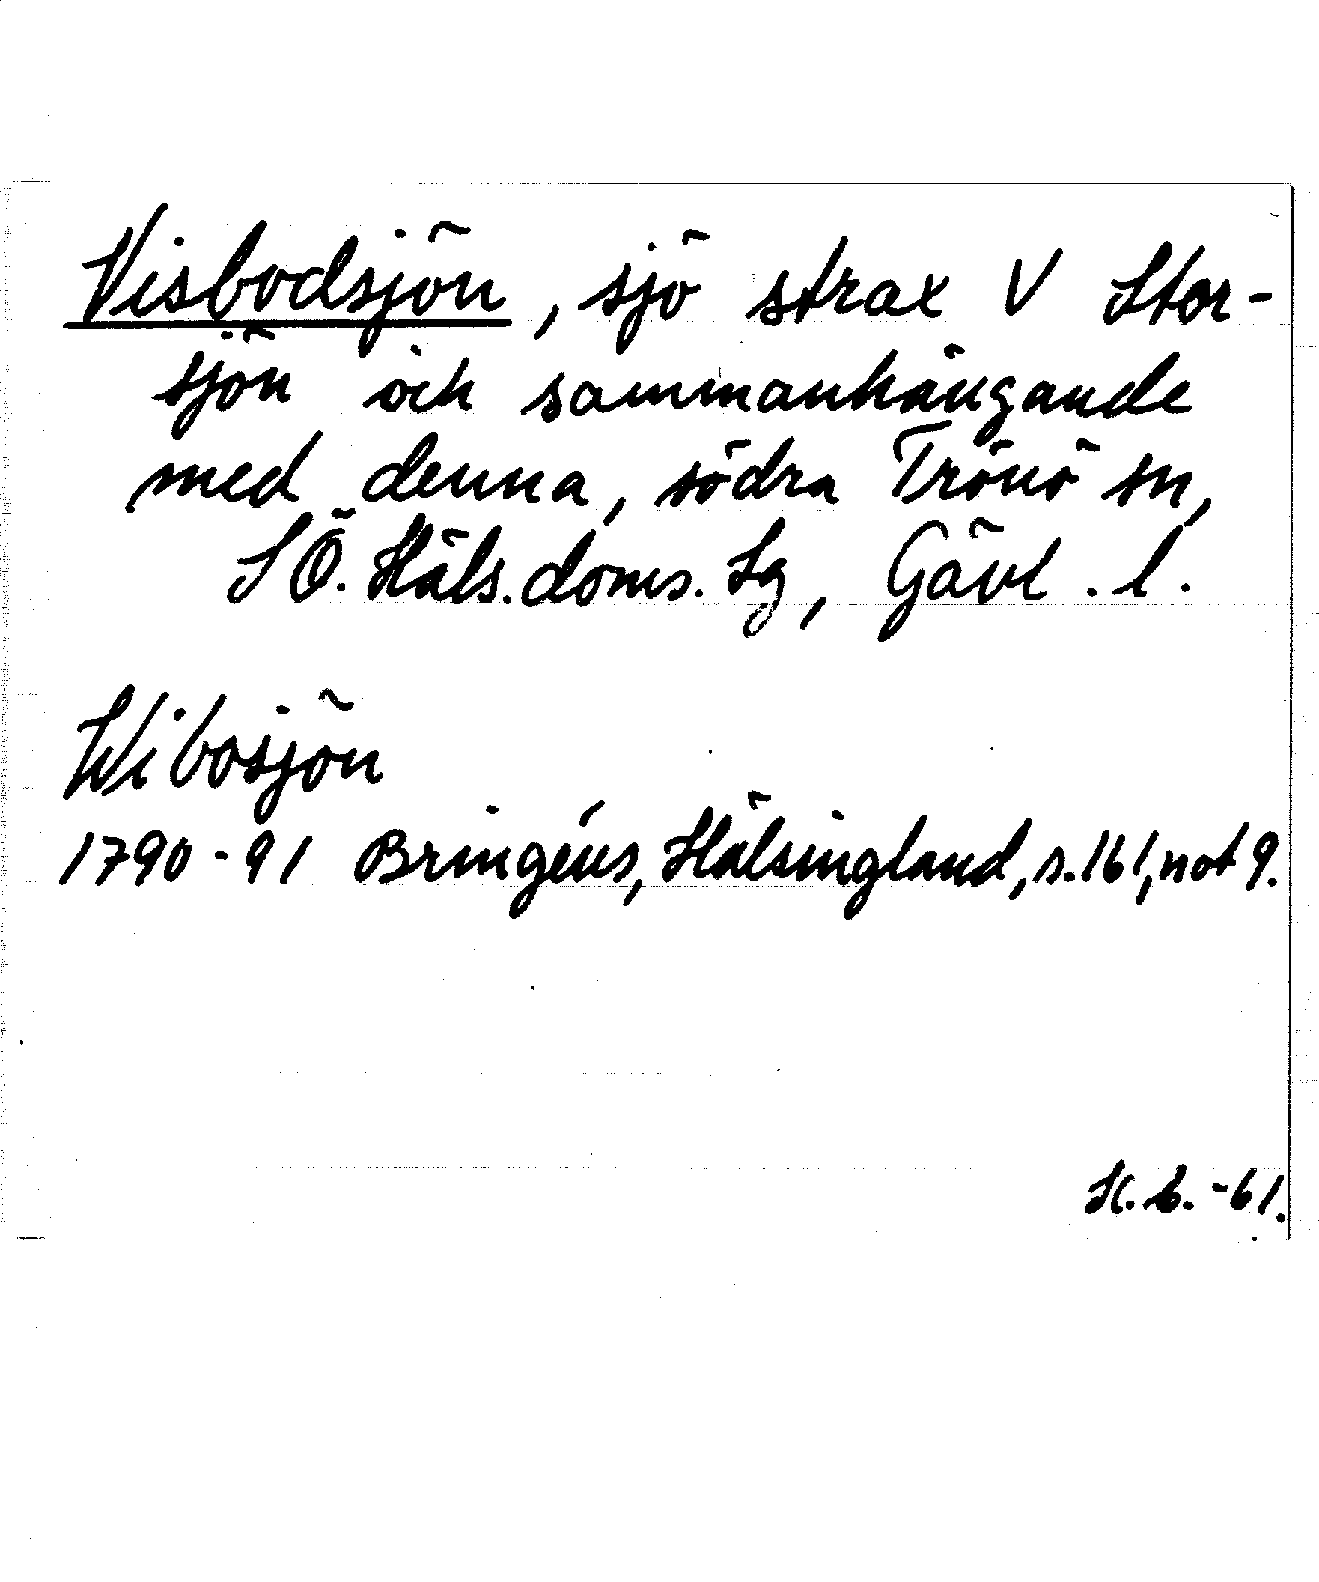 Visbodsjön, sjö strax V Stor-
sjön och sammanhängande
med denna, södra Trönö sn,
SÖ. Häls. doms. Sg, Gävl. l.
Wibosjön
1790-91 Bringéus, Hälsingland, s. 161, not 9.
K. b. -61.